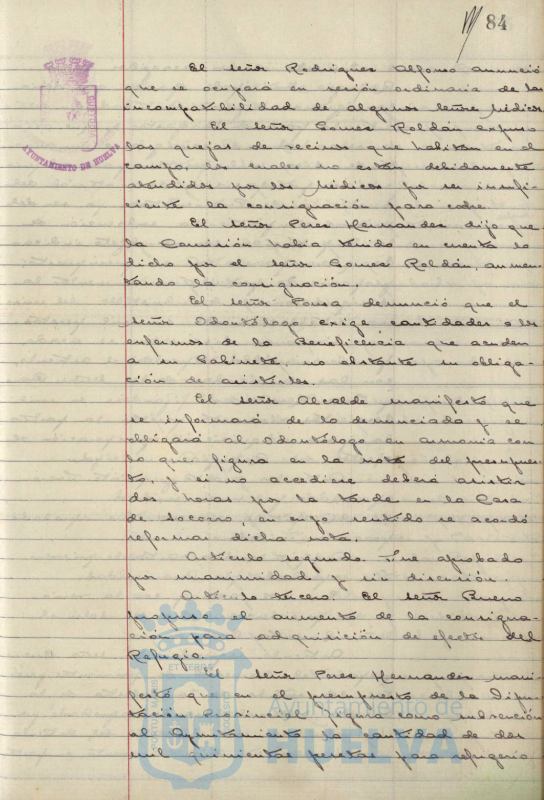 84
AYUNTAMIENTO DE HUELVA
El señor Rodriguez Alfonso anunció
que se ocupará en sesión ordinaria de las
incompatibilidad de algunos señores Médicos
El señor Gomez Roldán expuso
las quejas de vecinos que habitan en el
campo, los cuales no están debidamente
atendidos por los Médicos por ser insufi-
ciente la consignación para coche.
El señor Perez Hernandez dijo que
la Comisión habia tenido en cuenta lo
dicho por el señor Gomez Roldán, aumen-
tando la consignación.
El señor Ponsa denunció que el
señor Odontólogo exige cantidades a los
enfermos de la Beneficencia que acuden
a su Gabinete, no obstante su obliga-
ción de asistirles.
El señor Alcalde manifestó que
se informará de lo denunciado y se
obligará al Odontólogo en armonia con
lo que figura en la nota del presupues-
to, y si no accediese deberá asistir
dos horas por la tarde en la Casa
de Socorro, en cuyo sentido se acordó
reformar dicha nota.
Artículo segundo. Fue aprobado
por unanimidad y sin discusión.
Artículo tercero. El señor Bueno
propuso el aumento de la consigna-
ción para adquisición de efectos del
Refugio.
El señor Perez Hernandez mani-
festó que en el presupuesto de la Dipu-
tación Provincial figura como subvención
al Ayuntamiento la cantidad de dos
mil quinientas pesetas para refugerio
Ayuntamiento de
HUELVA